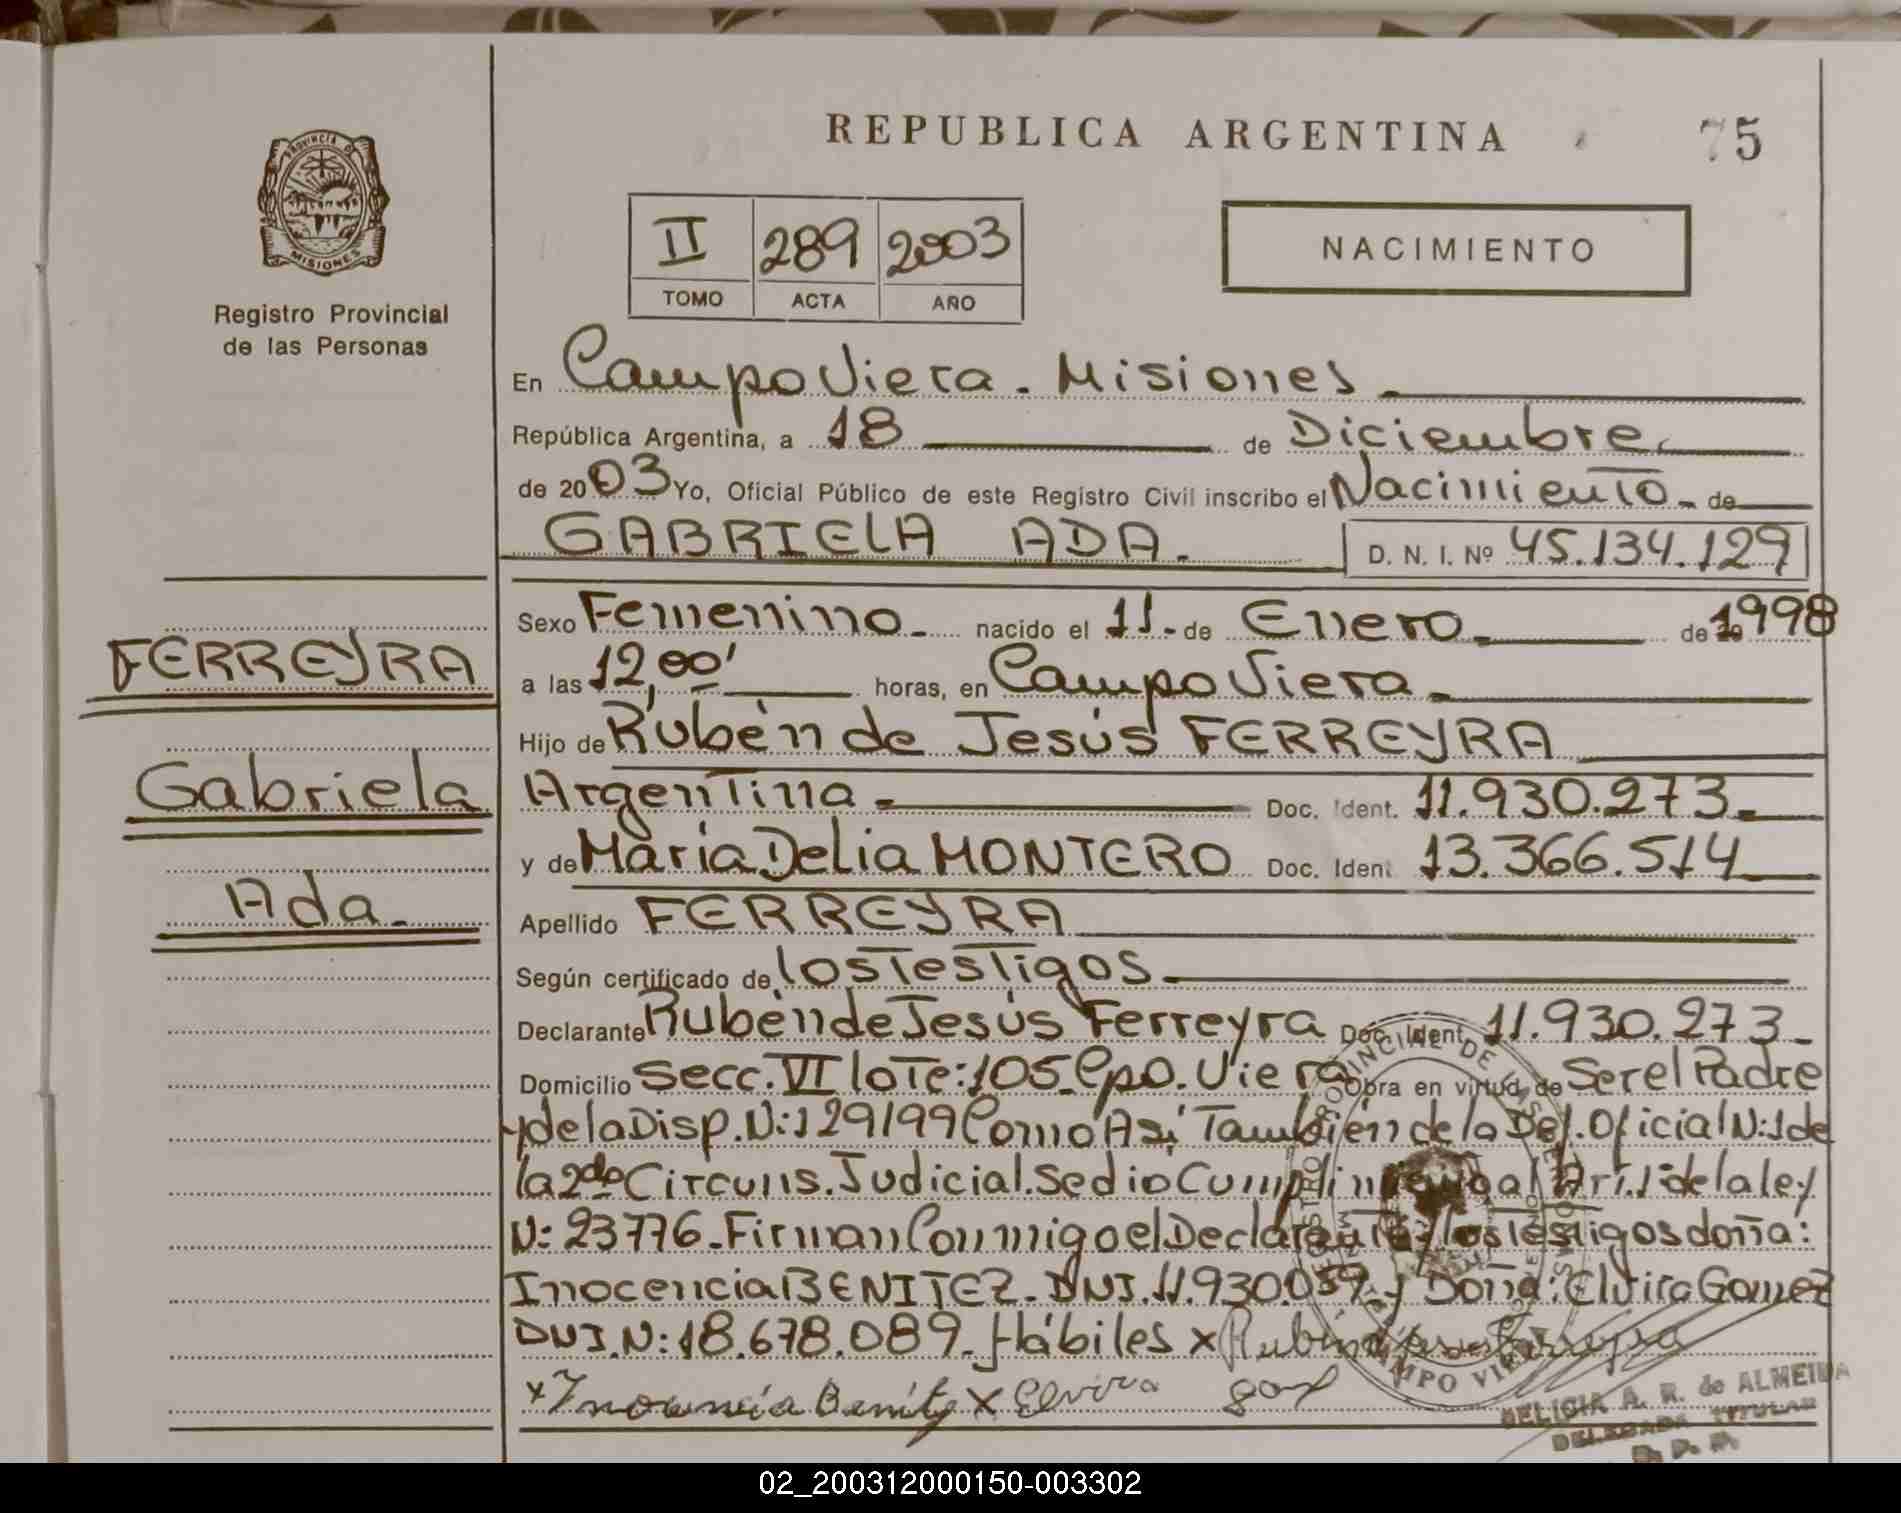 REPUBLICA ARGENTINA
75
PROVINCIA DE
MISIONES
Registro Provincial
de las Personas
II 289 2003
TOMO ACTA AÑO
NACIMIENTO
En Campo Viera. Misiones
República Argentina, a 18 de Diciembre
de 2003 Yo, Oficial Público de este Registro Civil inscribo el Nacimiento de
GABRIELA ADA. D. N. I. Nº 45.134.129
FERREYRA
Gabriela
Ada.
Sexo Femenino nacido el 11 de Enero de 1998
a las 12,00' horas, en Campo Viera
Hijo de Rubén de Jesús FERREYRA
Argentina Doc. Ident. 11.930.273
y de María Delia MONTERO Doc. Ident. 13.366.514
Apellido FERREYRA
Según certificado de los Testigos
Declarante Rubén de Jesús Ferreyra Doc. Ident. 11.930.273
Domicilio Secc. VI lote: 105 Cpo. Viera Obra en virtud de Ser el Padre
y de la Disp. N: 129/99 Como Así También de la Def. Oficial N: 1 de
la 2da Circuns. Judicial. Se dio Cumplimiento al Art. 1 de la ley
N: 23776. Firman Conmigo el Declarante y los Testigos doña:
Inocencia BENITEZ. DNI. 11.930.059 y Doña: Elvira Gomez
DNI. N: 18.678.089. Hábiles x Rubén de Jesus Ferreyra
x Inocencia Benitez x Elvira
REGISTRO PROVINCIAL DE LAS PERSONAS
CAMPO VIERA
DELICIA A. R. de ALMEIDA
DELEGADA TITULAR
02_200312000150-003302